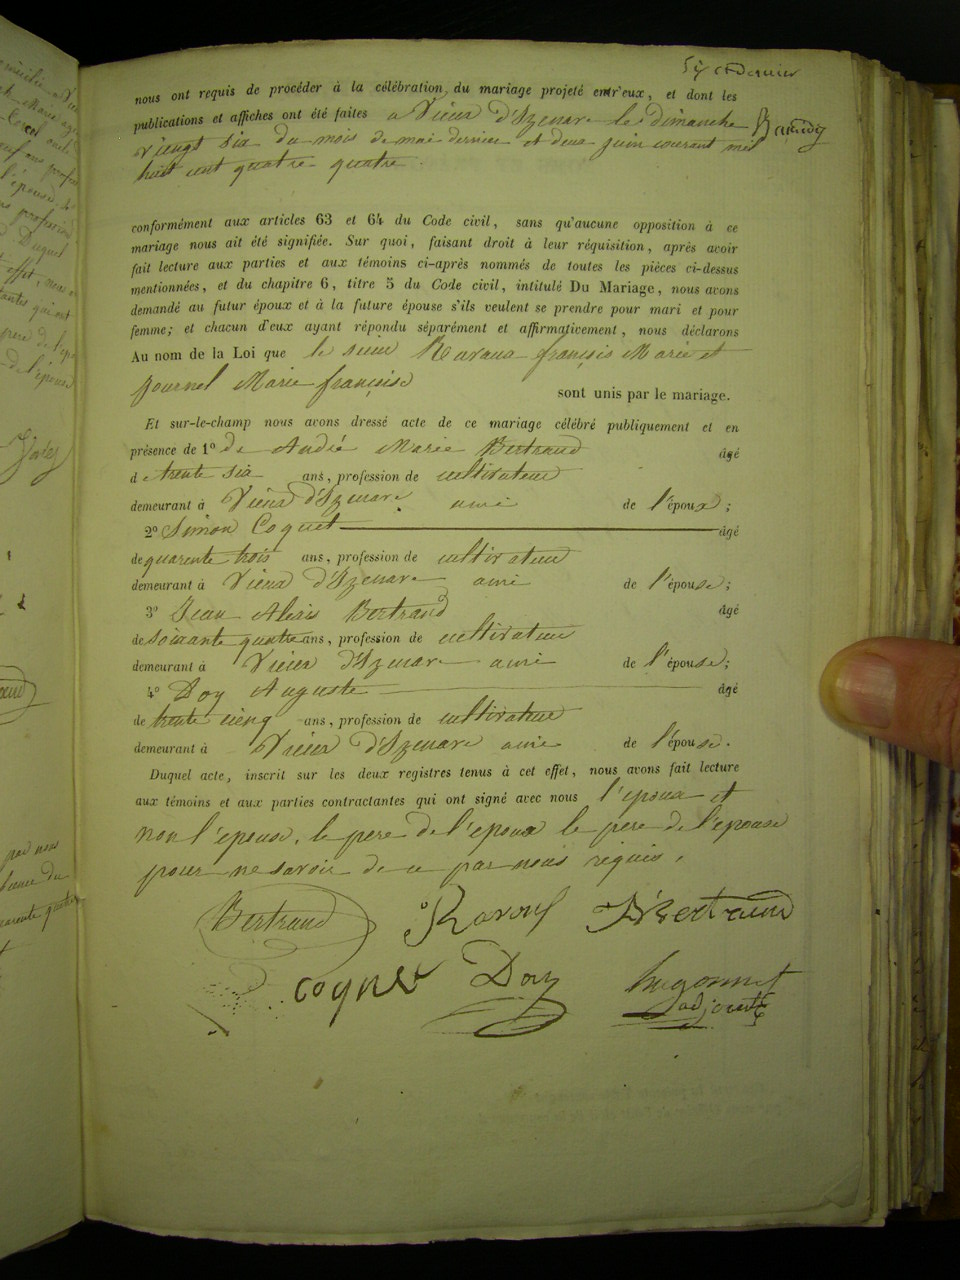 5y et dernier
nous ont requis de procéder à la célébration du mariage projeté entr'eux, et dont les
publications et affiches ont été faites a Vieux d'Izenave le dimanche
viengt six du mois de mai dernier et deux juin courant mil
huit cent quatre quatre.
conformément aux articles 63 et 64 du Code civil, sans qu'aucune opposition à ce
mariage nous ait été signifiée. Sur quoi, faisant droit à leur réquisition, après avoir
fait lecture aux parties et aux témoins ci-après nommés de toutes les pièces ci-dessus
mentionnées, et du chapitre 6, titre 5 du Code civil, intitulé Du Mariage, nous avons
demandé au futur époux et à la future épouse s'ils veulent se prendre pour mari et pour
femme; et chacun d'eux ayant répondu séparément et affirmativement, nous déclarons
Au nom de la Loi que le sieur Ravaux françois Marie et
Journel Marie françoise sont unis par le mariage.
Et sur-le-champ nous avons dressé acte de ce mariage célébré publiquement et en
présence de 1º de André Marie Bertrand âgé
de trente six ans, profession de cultivateur
demeurant à Vieux d'Izenave ami de l'époux;
2º Simon Coquet âgé
de quarente trois ans, profession de cultivateur
demeurant à Vieux d'Izenave ami de l'épouse;
3º Jean Alexis Bertrand âgé
de soixante quatre ans, profession de cultivateur
demeurant à Vieux d'Izenave ami de l'épouse;
4º Doy Auguste âgé
de trente cienq ans, profession de cultivateur
demeurant à Vieux d'Izenave ami de l'épouse.
Duquel acte, inscrit sur les deux registres tenus à cet effet, nous avons fait lecture
aux témoins et aux parties contractantes qui ont signé avec nous l'époux et
non l'épouse, le pere de l'epoux le pere de l'epouse
pour ne savoir de ce par nous requis.
Bertrand Bertrand
Doy hugonnet
adjoint